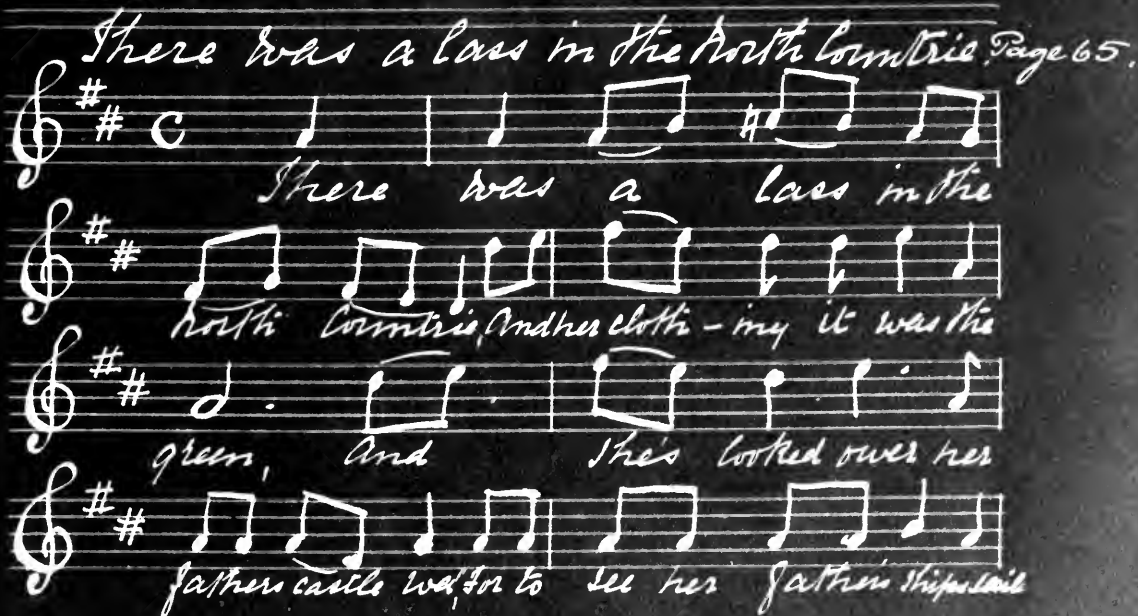 There was a lass in the North Countrie. Page 65.
There was a lass in the
North Countrie, And her cloth-ing it was the
green, And she's looked ower her
fathers castle wa', for to see her father's ships sail